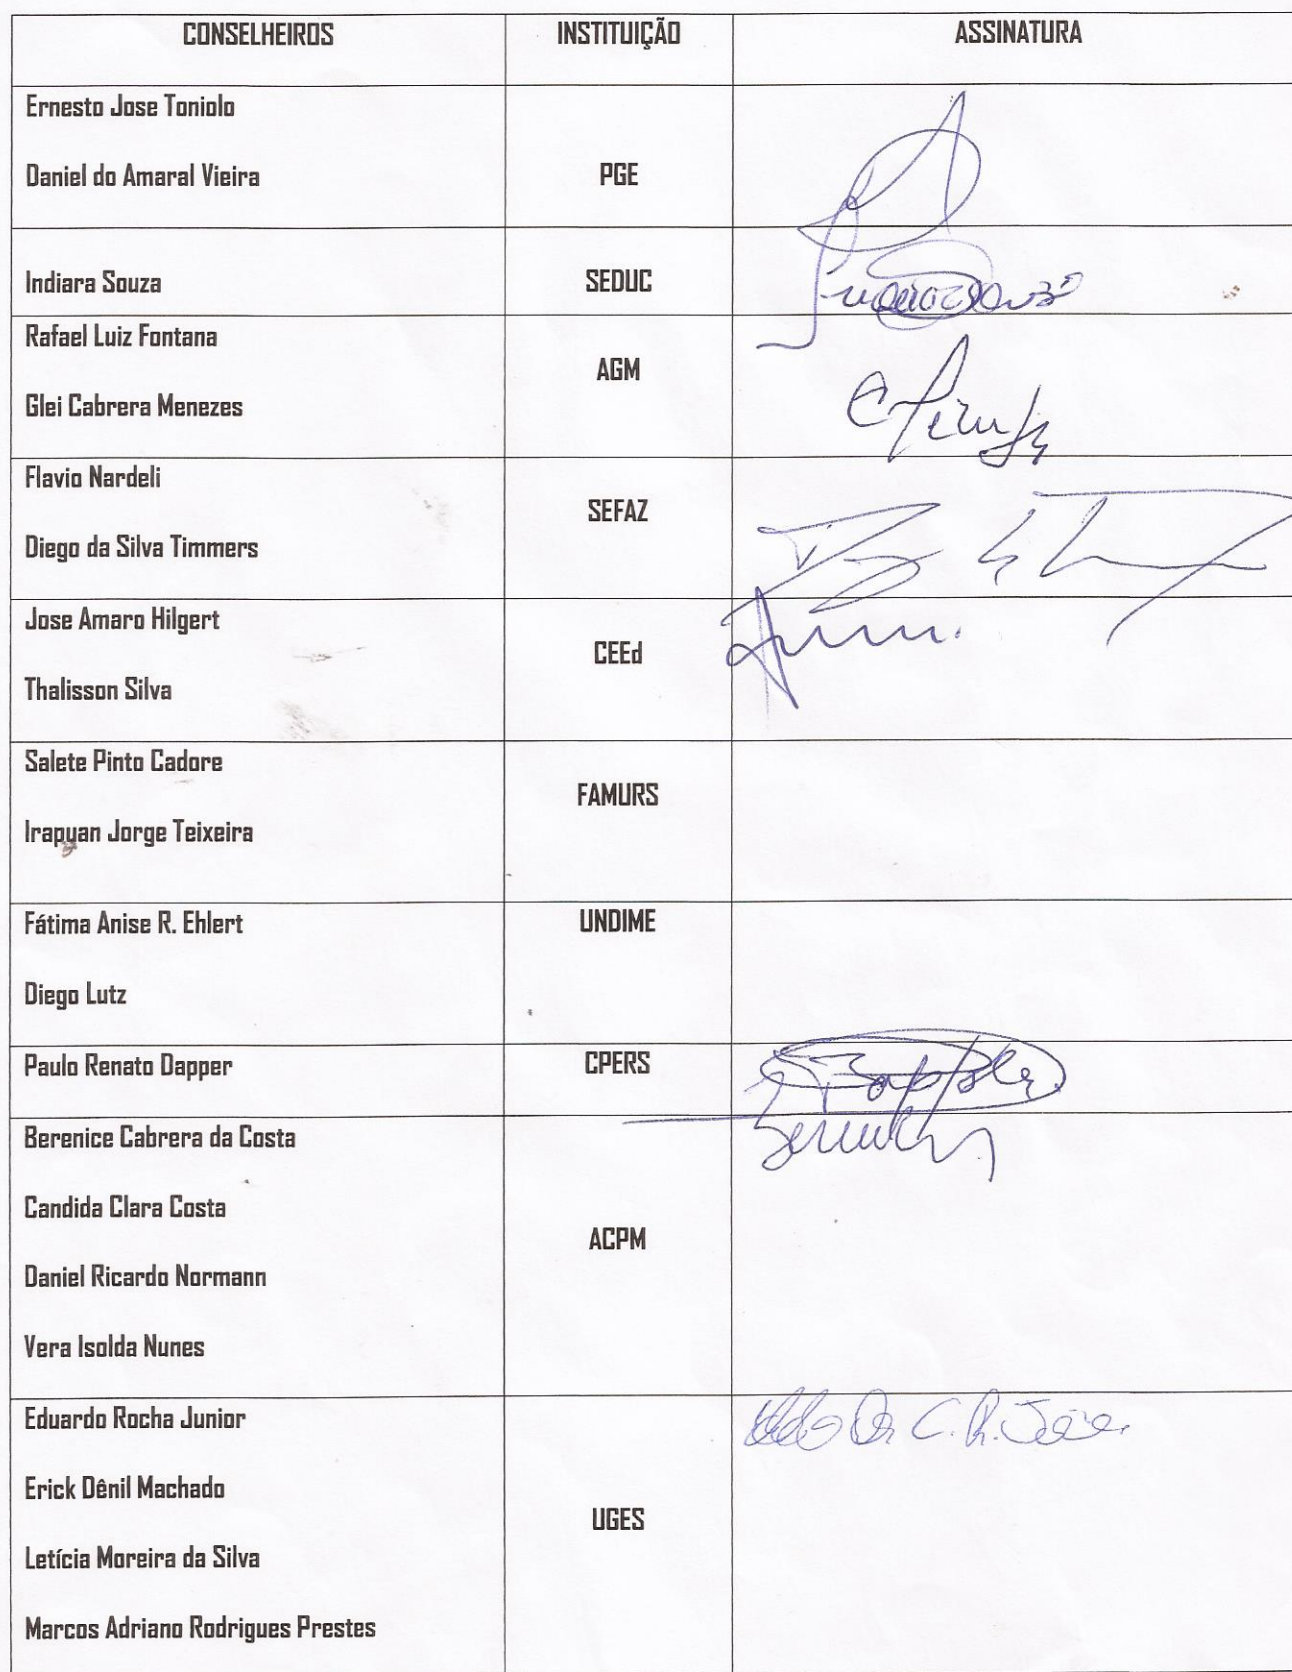 CONSELHEIROS INSTITUIÇÃO ASSINATURA
Ernesto Jose Toniolo
Daniel do Amaral Vieira PGE
Indiara Souza SEDUC
Rafael Luiz Fontana
AGM
Glei Cabrera Menezes
Flavio Nardeli
SEFAZ
Diego da Silva Timmers
Jose Amaro Hilgert
CEEd
Thalisson Silva
Salete Pinto Cadore
FAMURS
Irapuan Jorge Teixeira
Fátima Anise R. Ehlert UNDIME
Diego Lutz
Paulo Renato Dapper CPERS
Berenice Cabrera da Costa
Candida Clara Costa
ACPM
Daniel Ricardo Normann
Vera Isolda Nunes
Eduardo Rocha Junior
Erick Dênil Machado
UGES
Letícia Moreira da Silva
Marcos Adriano Rodrigues Prestes